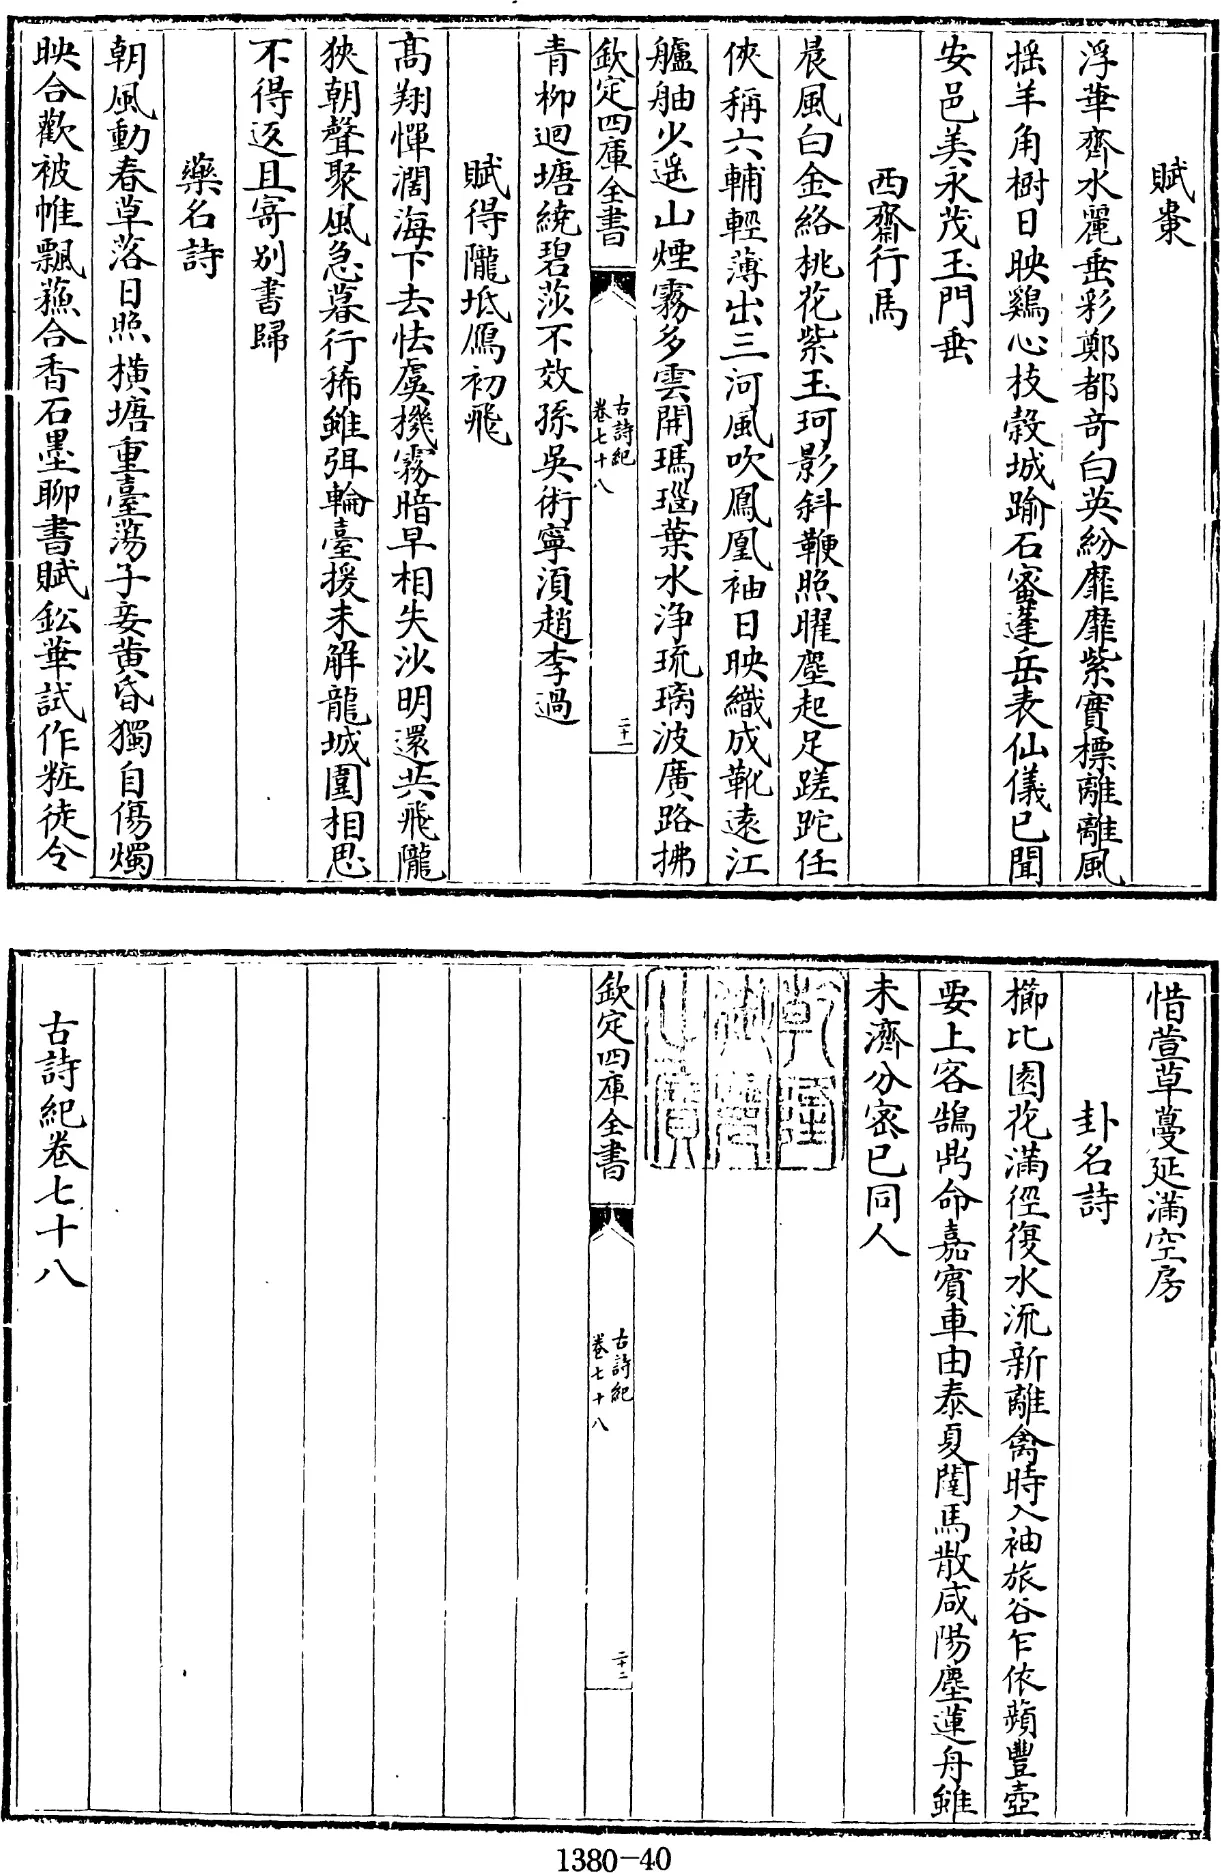 賦棗
浮華齊水麗垂彩鄭都竒白英紛靡靡紫實標離離風
揺羊角樹日映鷄心枝穀城踰石蜜蓬岳表仙儀已聞
安邑美永茂玉門垂
西齋行馬
晨風白金絡桃花紫玉珂影斜鞭照曜塵起足蹉跎任
俠稱六輔輕薄出三河風吹鳳凰袖日映織成靴逺江
艫舳少遥山煙霧多雲開瑪瑙葉水浄琉璃波廣路拂
欽定四庫全書
古詩紀
卷七十八
二十一
青柳迴塘繞碧莎不效孫吳術寧湏趙李過
賦得隴坻鴈初飛
髙翔憚濶海下去怯虞機霧暗早相失沙明還共飛隴
狹朝聲聚風急暮行稀雖弭輪臺援未解龍城圍相思
不得返且寄别書歸
藥名詩
朝風動春草落日照横塘重臺蕩子妾黄昏獨自傷燭
映合歡被帷飄蘓合香石墨聊書賦鈆華試作粧徒令
惜萱草蔓延滿空房
卦名詩
櫛比園花滿徑復水流新離禽時入袖旅谷乍依蘋豐壺
要上客鵠鼎命嘉賓車由泰夏闥馬散咸陽塵蓮舟雖
未濟分密已同人
乾隆
御覽
之寶
欽定四庫全書
古詩紀
卷七十八
二十二
古詩紀卷七十八
1380-40